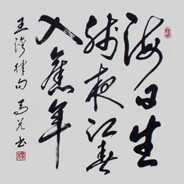 海日生
残夜江春
入旧年
王湾诗句 马光书